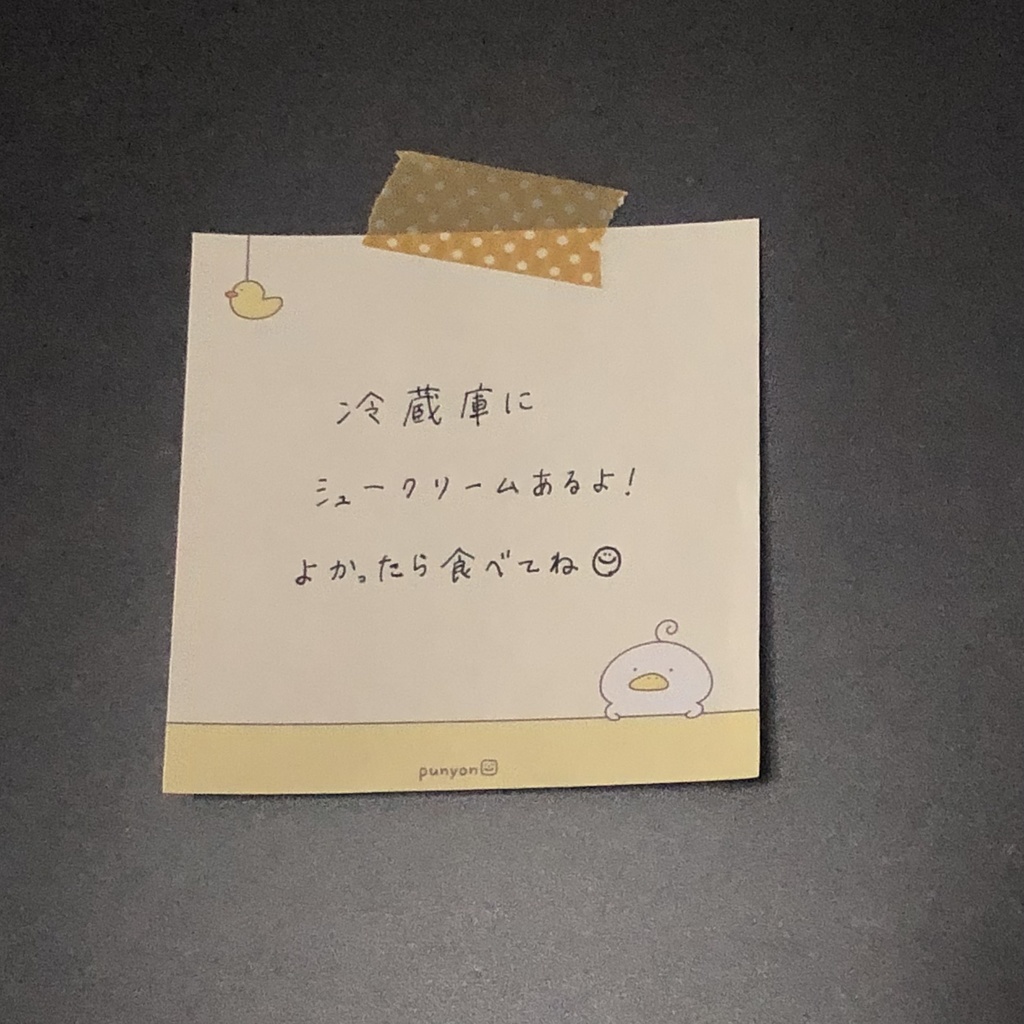 冷蔵庫に
シュークリームあるよ！
よかったら食べてね☺
punyon